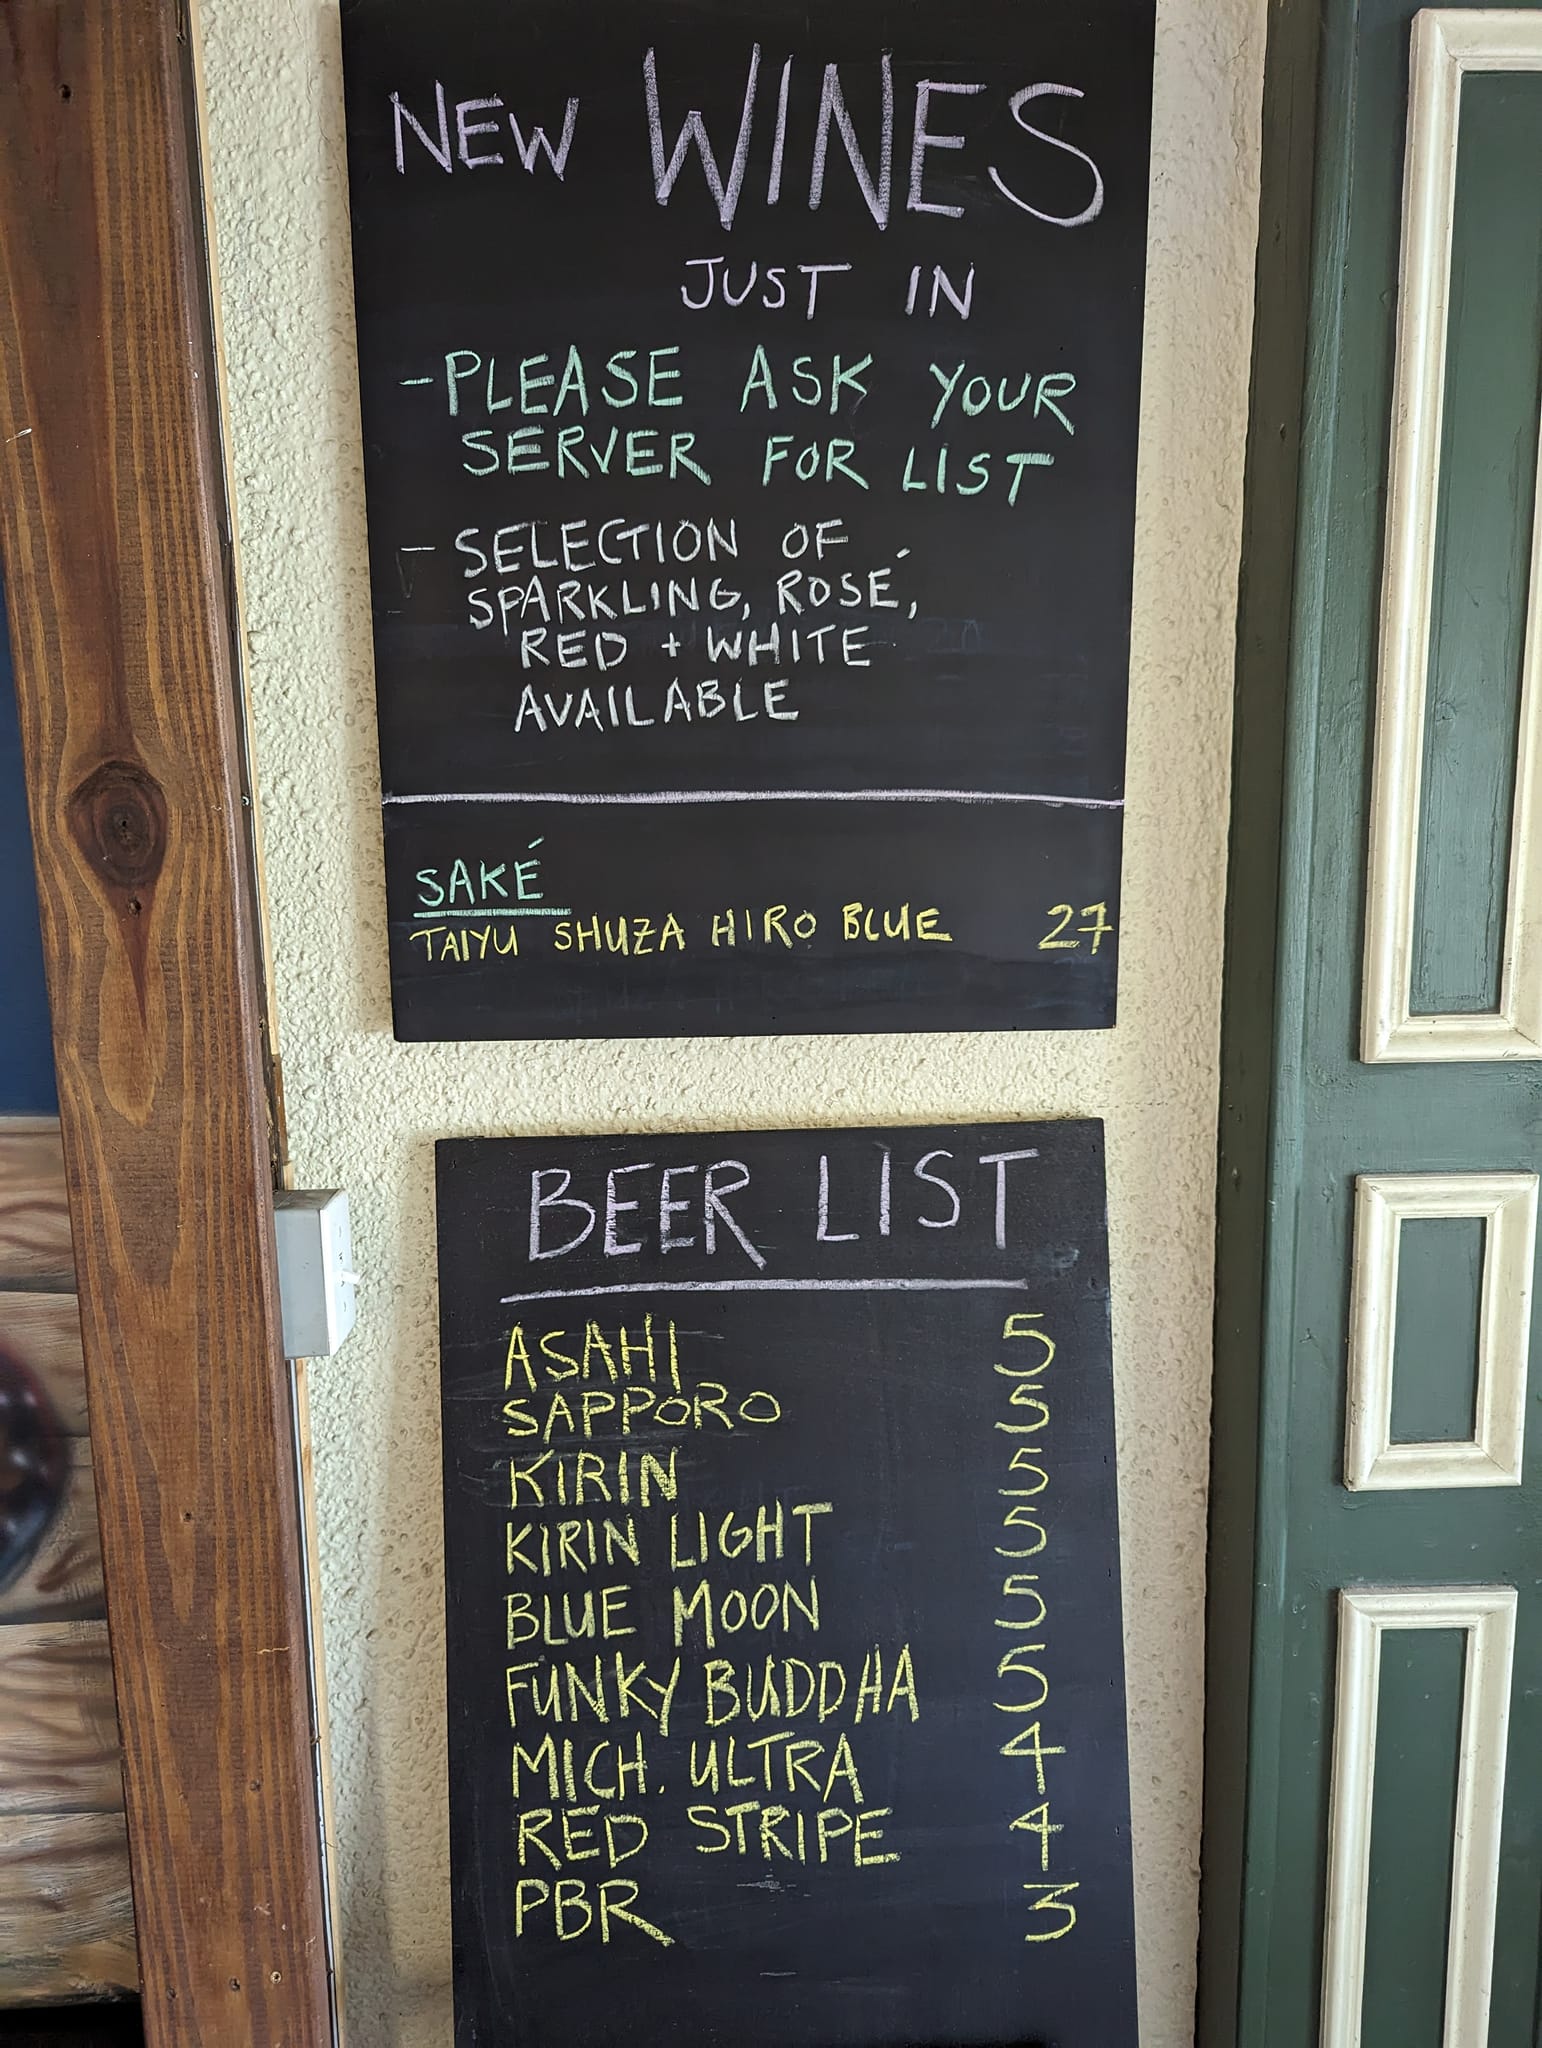 NEW WINES
JUST IN
- PLEASE ASK YOUR
SERVER FOR LIST
- SELECTION OF
SPARKLING, ROSÉ,
RED + WHITE
AVAILABLE
SAKÉ
TAIYU SHUZA HIRO BLUE 27
BEER LIST
ASAHI 5
SAPPORO 5
KIRIN 5
KIRIN LIGHT 5
BLUE MOON 5
FUNKY BUDDHA 5
MICH. ULTRA 4
RED STRIPE 4
PBR 3